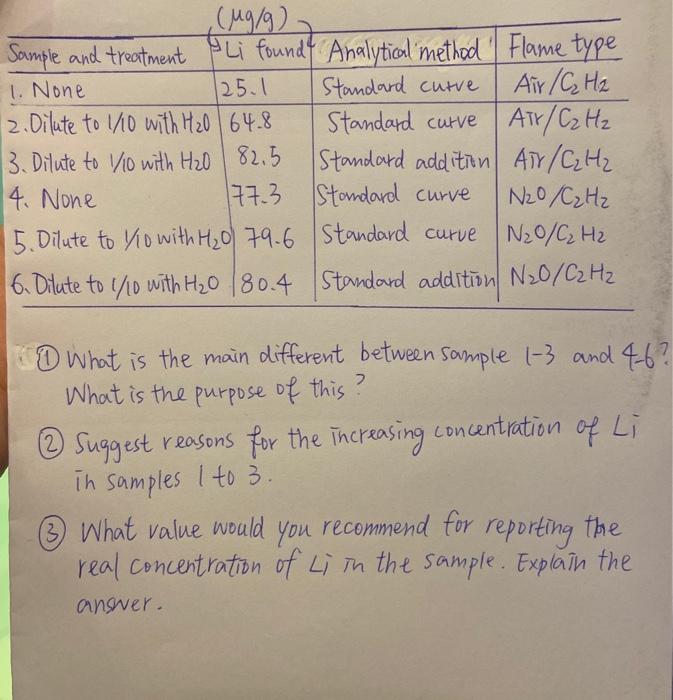 (μg/g)
Sample and treatment Li found Analytical method Flame type
1. None 25.1 Standard curve Air/C2H2
2. Dilute to 1/10 with H2O 64.8 Standard curve Air/C2H2
3. Dilute to 1/10 with H2O 82.5 Standard addition Air/C2H2
4. None 77.3 Standard curve N2O/C2H2
5. Dilute to 1/10 with H2O 79.6 Standard curve N2O/C2H2
6. Dilute to 1/10 with H2O 80.4 Standard addition N2O/C2H2
① What is the main different between sample 1-3 and 4-6?
What is the purpose of this?
② Suggest reasons for the increasing concentration of Li
in samples 1 to 3.
③ What value would you recommend for reporting the
real concentration of Li in the sample. Explain the
answer.